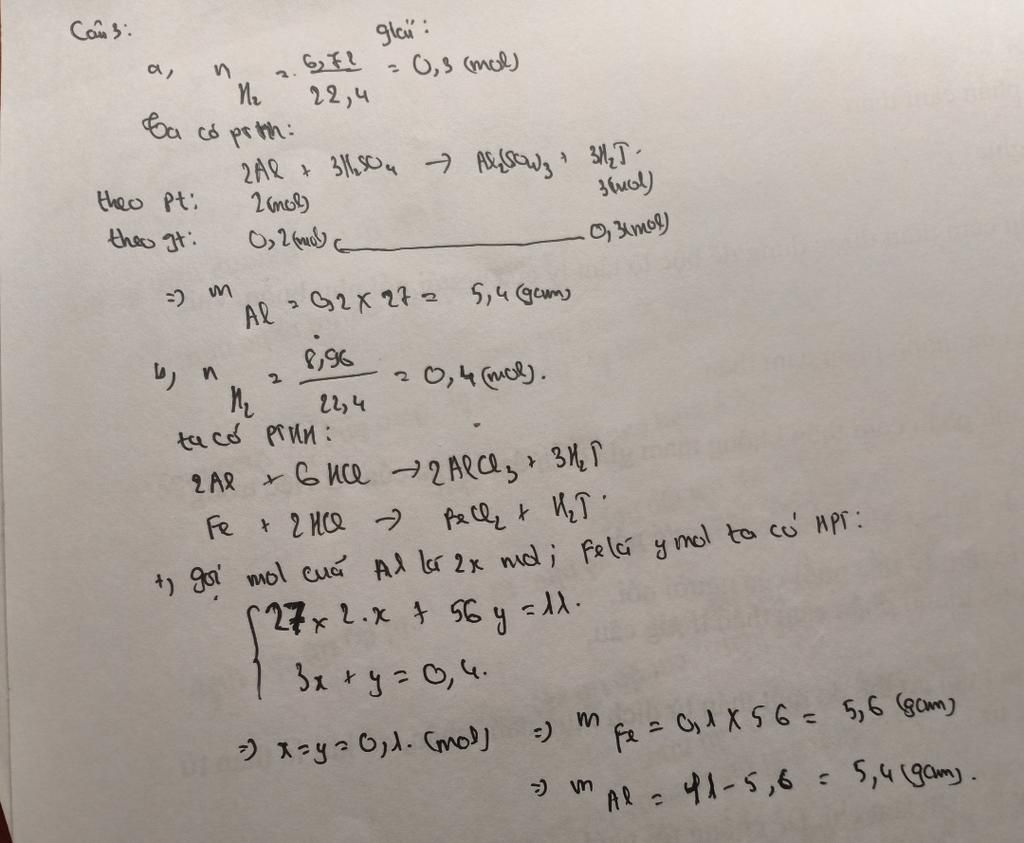 Câu 3: giải:
a, n H₂ = 6,72 / 22,4 = 0,3 (mol)
Ta có ptHH:
2Al + 3H₂SO₄ → Al₂(SO₄)₃ + 3H₂↑.
theo pt: 2(mol) 3(mol)
theo gt: 0,2(mol) ← 0,3(mol)
=> m Al = 0,2 x 27 = 5,4 (gam)
b, n H₂ = 8,96 / 22,4 = 0,4 (mol).
ta có PTHH:
2Al + 6HCl → 2AlCl₃ + 3H₂↑
Fe + 2HCl → FeCl₂ + H₂↑.
+, gọi mol cuả Al là 2x mol; Fe là y mol ta có HPT:
27 x 2.x + 56y = 11.
3x + y = 0,4.
=> x=y=0,1. (mol) => m Fe = 0,1 x 56 = 5,6 (gam)
=> m Al = 11-5,6 = 5,4 (gam).